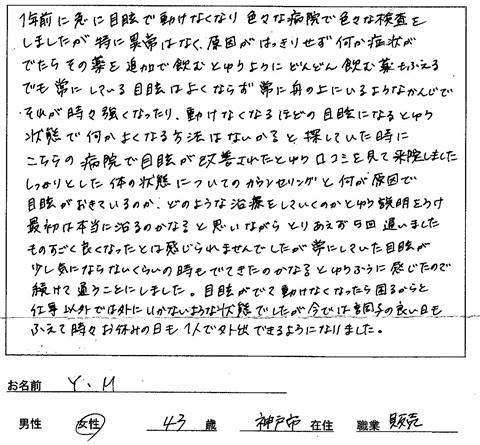 1年前に急に目眩で動けなくなり色々な病院で色々な検査を
しましたが特に異常はなく、原因がはっきりせず何か症状が
でたらその薬を追加で飲むとゆうようにどんどん飲む薬もふえる
でも常にしている目眩はよくならず常に舟の上にいるようなかんじで
それが時々強くなったり、動けなくなるほどの目眩になるとゆう
状態で何かよくなる方法はないかなと探していた時に
こちらの病院で目眩が改善されたとゆう口コミを見て来院しました
しっかりとした体の状態についてのカウンセリングと何が原因で
目眩がおきているのか、どのような治療をしていくのかとゆう説明をうけ
最初は本当に治るのかなと思いながらとりあえず5回通いました
ものすごく良くなったとは感じられませんでしたが常にしていた目眩が
少し気にならないくらいの時もでてきたのかなとゆうふうに感じたので
続けて通うことにしました。目眩がでて動けなくなったら困るからと
仕事以外では外にいかないような状態でしたが今では調子の良い日も
ふえて時々お休みの日も1人で外出できるようになりました。
お名前 Y.H
男性 女性 43 歳 神戸市 在住 職業 販売